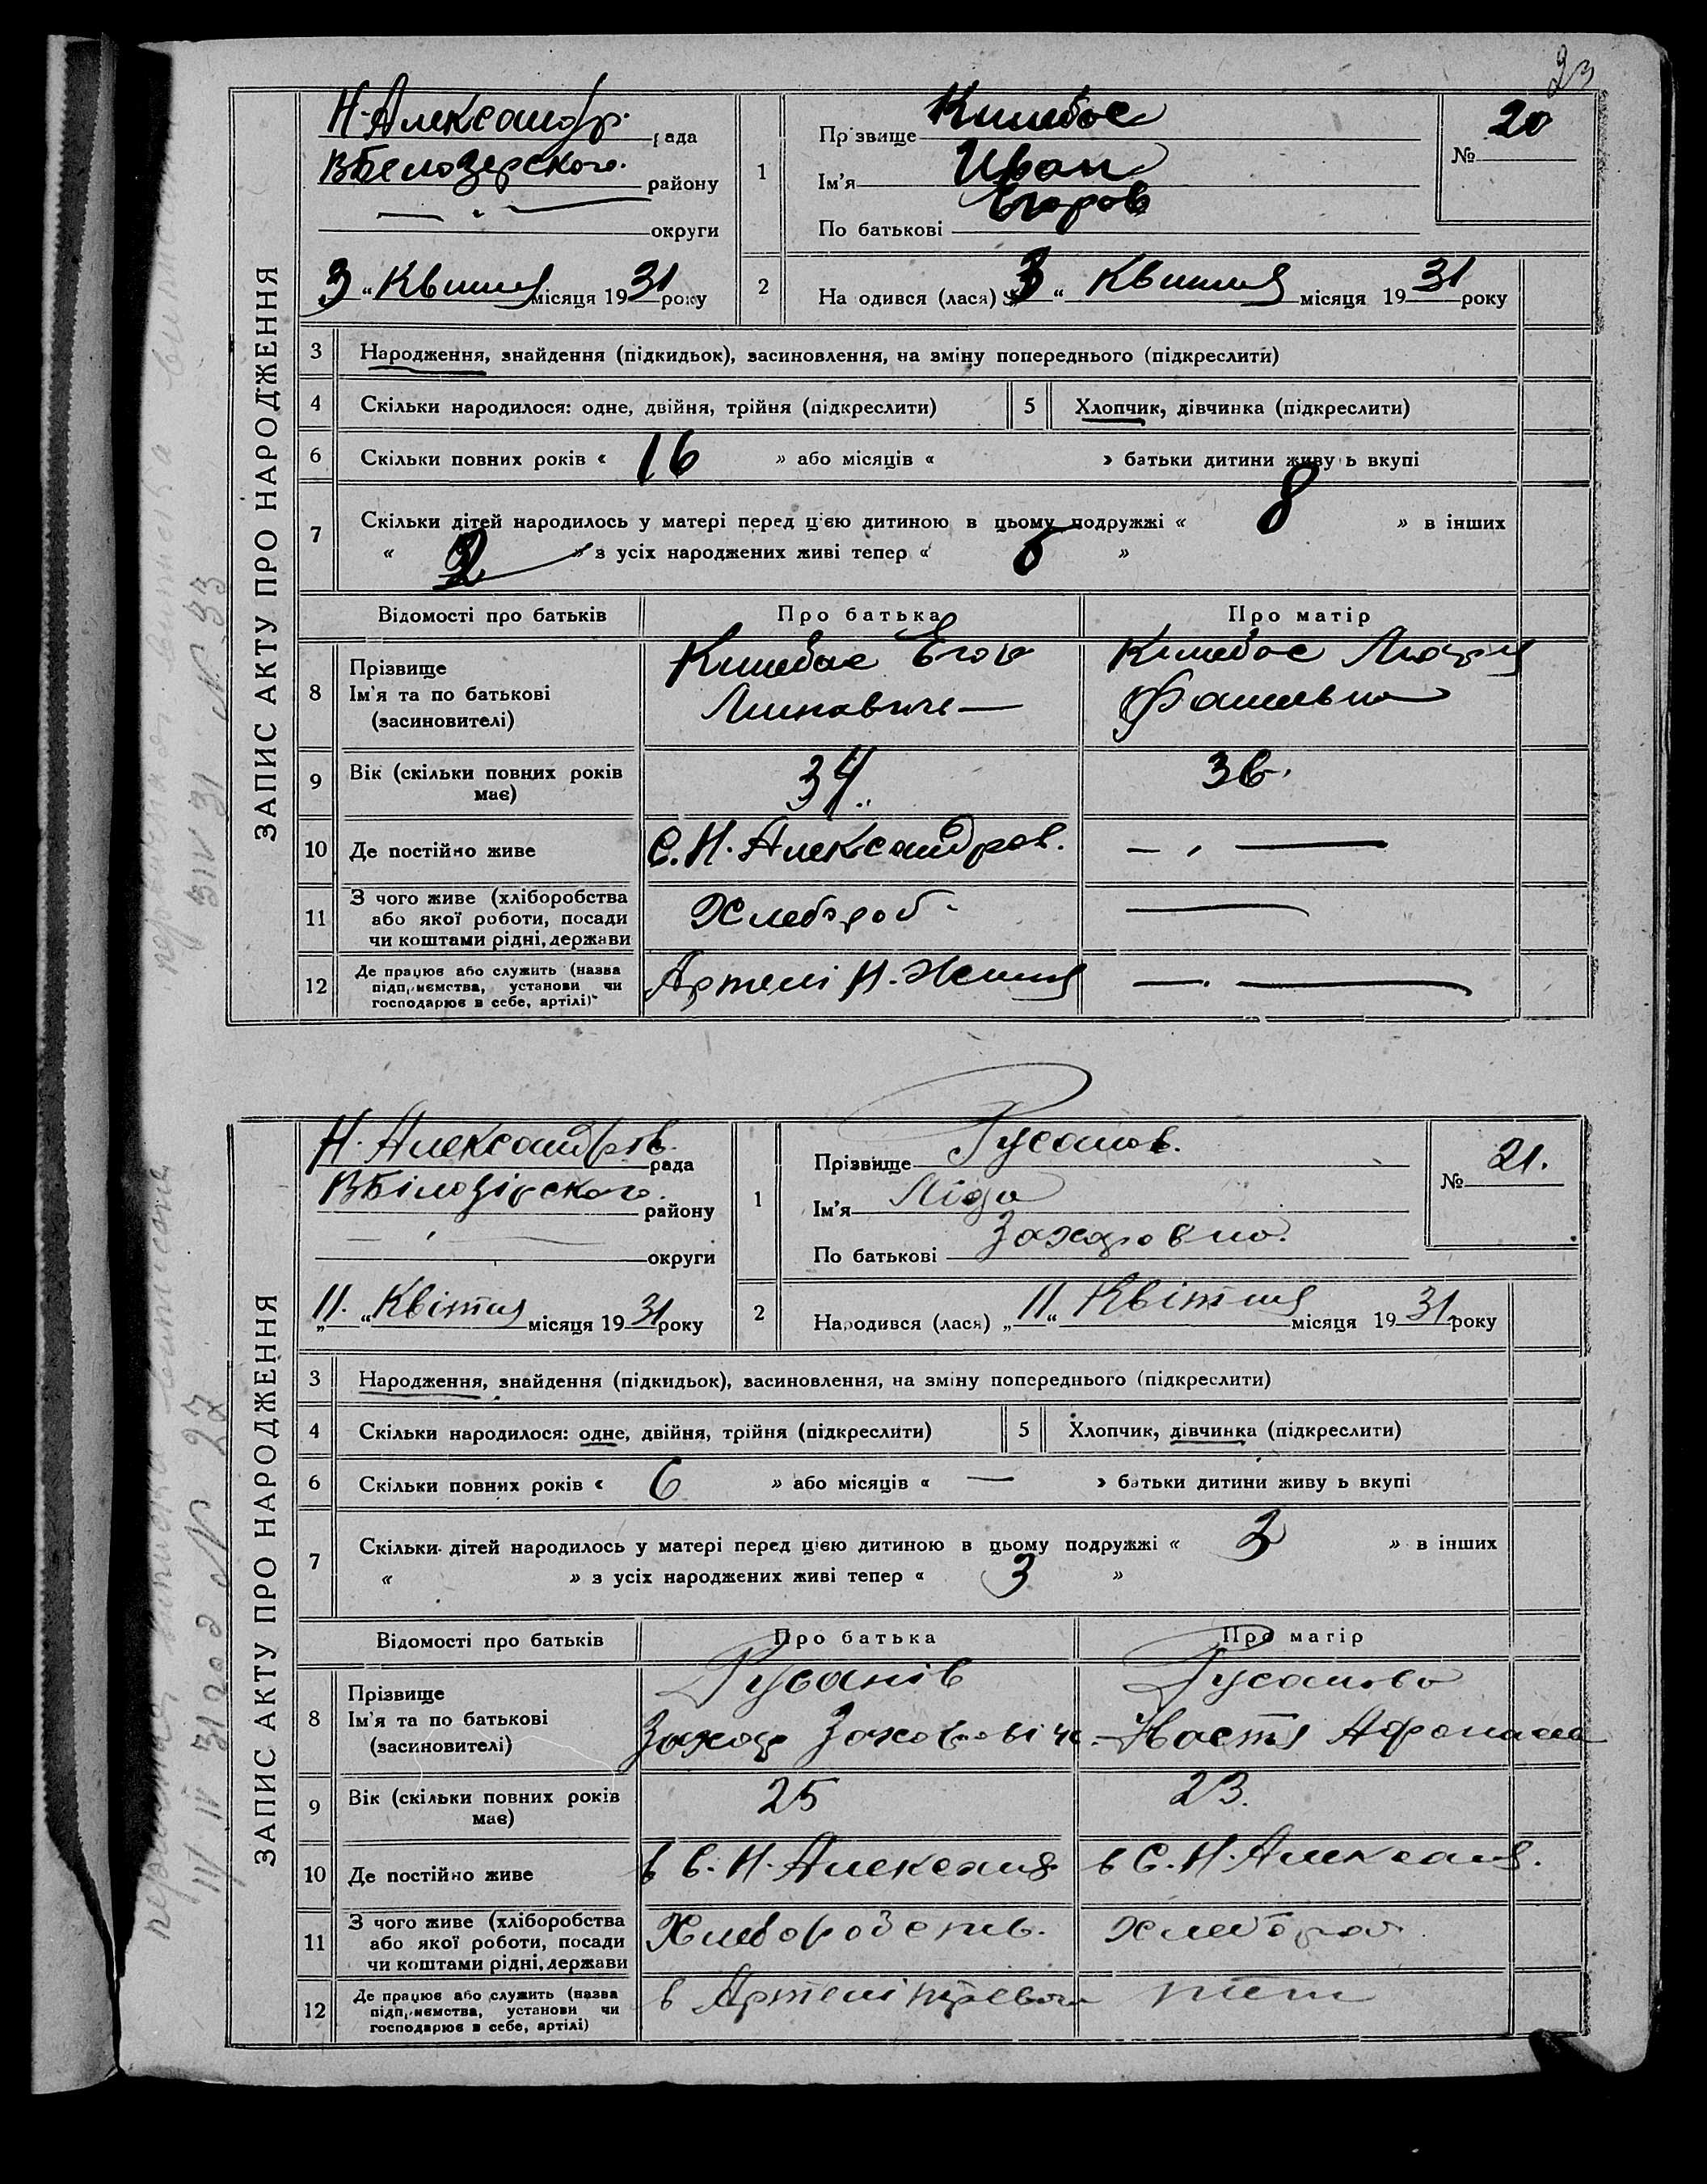 23
ЗАПИС АКТУ ПРО НАРОДЖЕННЯ
Н-Александр. рада
ВБелозерского. району
округи
3 " Квітня місяця 1931 року
1
Прізвище
Ім'я Иван
По батькові Егоров
№ 20
2 На одився (лася) 3 " Квітня місяця 1931 року
3 Народження, знайдення (підкидьок), засиновлення, на зміну попереднього (підкреслити)
4 Скільки народилося: одне, двійня, трійня (підкреслити)
5 Хлопчик, дівчинка (підкреслити)
6 Скільки повних років « 16 » або місяців « » батьки дитини живу ь вкупі
7 Скільки дітей народилось у матері перед ц'ею дитиною в цьому подружжі « 8 » в інших
« 2 » з усіх народжених живі тепер « »
Відомості про батьків Про батька Про матір
8 Прізвище
Ім'я та по батькові
(засиновителі)
Егор
9 Вік (скільки повних років
має)
34. 36.
10 Де постійно живе С. Н. Александров. — " —
11 З чого живе (хліборобства
або якої роботи, посади
чи коштами рідні, держави
Хлебороб - —
12 Де працює або служить (назва
підприємства, установи чи
господарює в себе, артілі)
Артелі Н. — " —
ЗАПИС АКТУ ПРО НАРОДЖЕННЯ
Н. Александров. рада
ВБілозірского. району
— " — округи
„11. “ Квітня місяця 1931 року
1
Прізвище Русанов.
Ім'я Ліда
По батькові Захаровна.
№ 21.
2 Народився (лася) „11 “ Квітня місяця 1931 року
3 Народження, знайдення (підкидьок), засиновлення, на зміну попереднього (підкреслити)
4 Скільки народилося: одне, двійня, трійня (підкреслити)
5 Хлопчик, дівчинка (підкреслити)
6 Скільки повних років « 6 » або місяців « — » батьки дитини живу ь вкупі
7 Скільки дітей народилось у матері перед цією дитиною в цьому подружжі « 3 » в інших
« » з усіх народжених живі тепер « 3 »
Відомості про батьків Про батька Про матір
8 Прізвище
Ім'я та по батькові
(засиновителі)
Русанів
Захар Захаровіч.
Русанова
Настя Афанасев
9 Вік (скільки повних років
має)
25 23.
10 Де постійно живе в С. Н. Александ в С. Н. Александ.
11 З чого живе (хліборобства
або якої роботи, посади
чи коштами рідні, держави
Хлеборобств. Хлебороб
12 Де працює або служить (назва
підприємства, установи чи
господарює в себе, артілі)
в Артелі